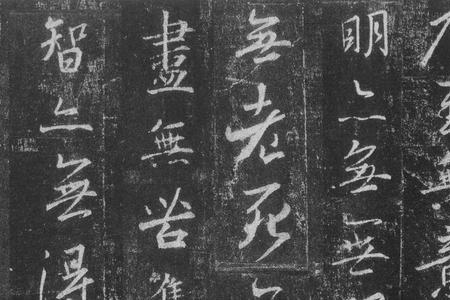 乃至無意
明亦無無
無老死亦
盡無苦集
智亦無得